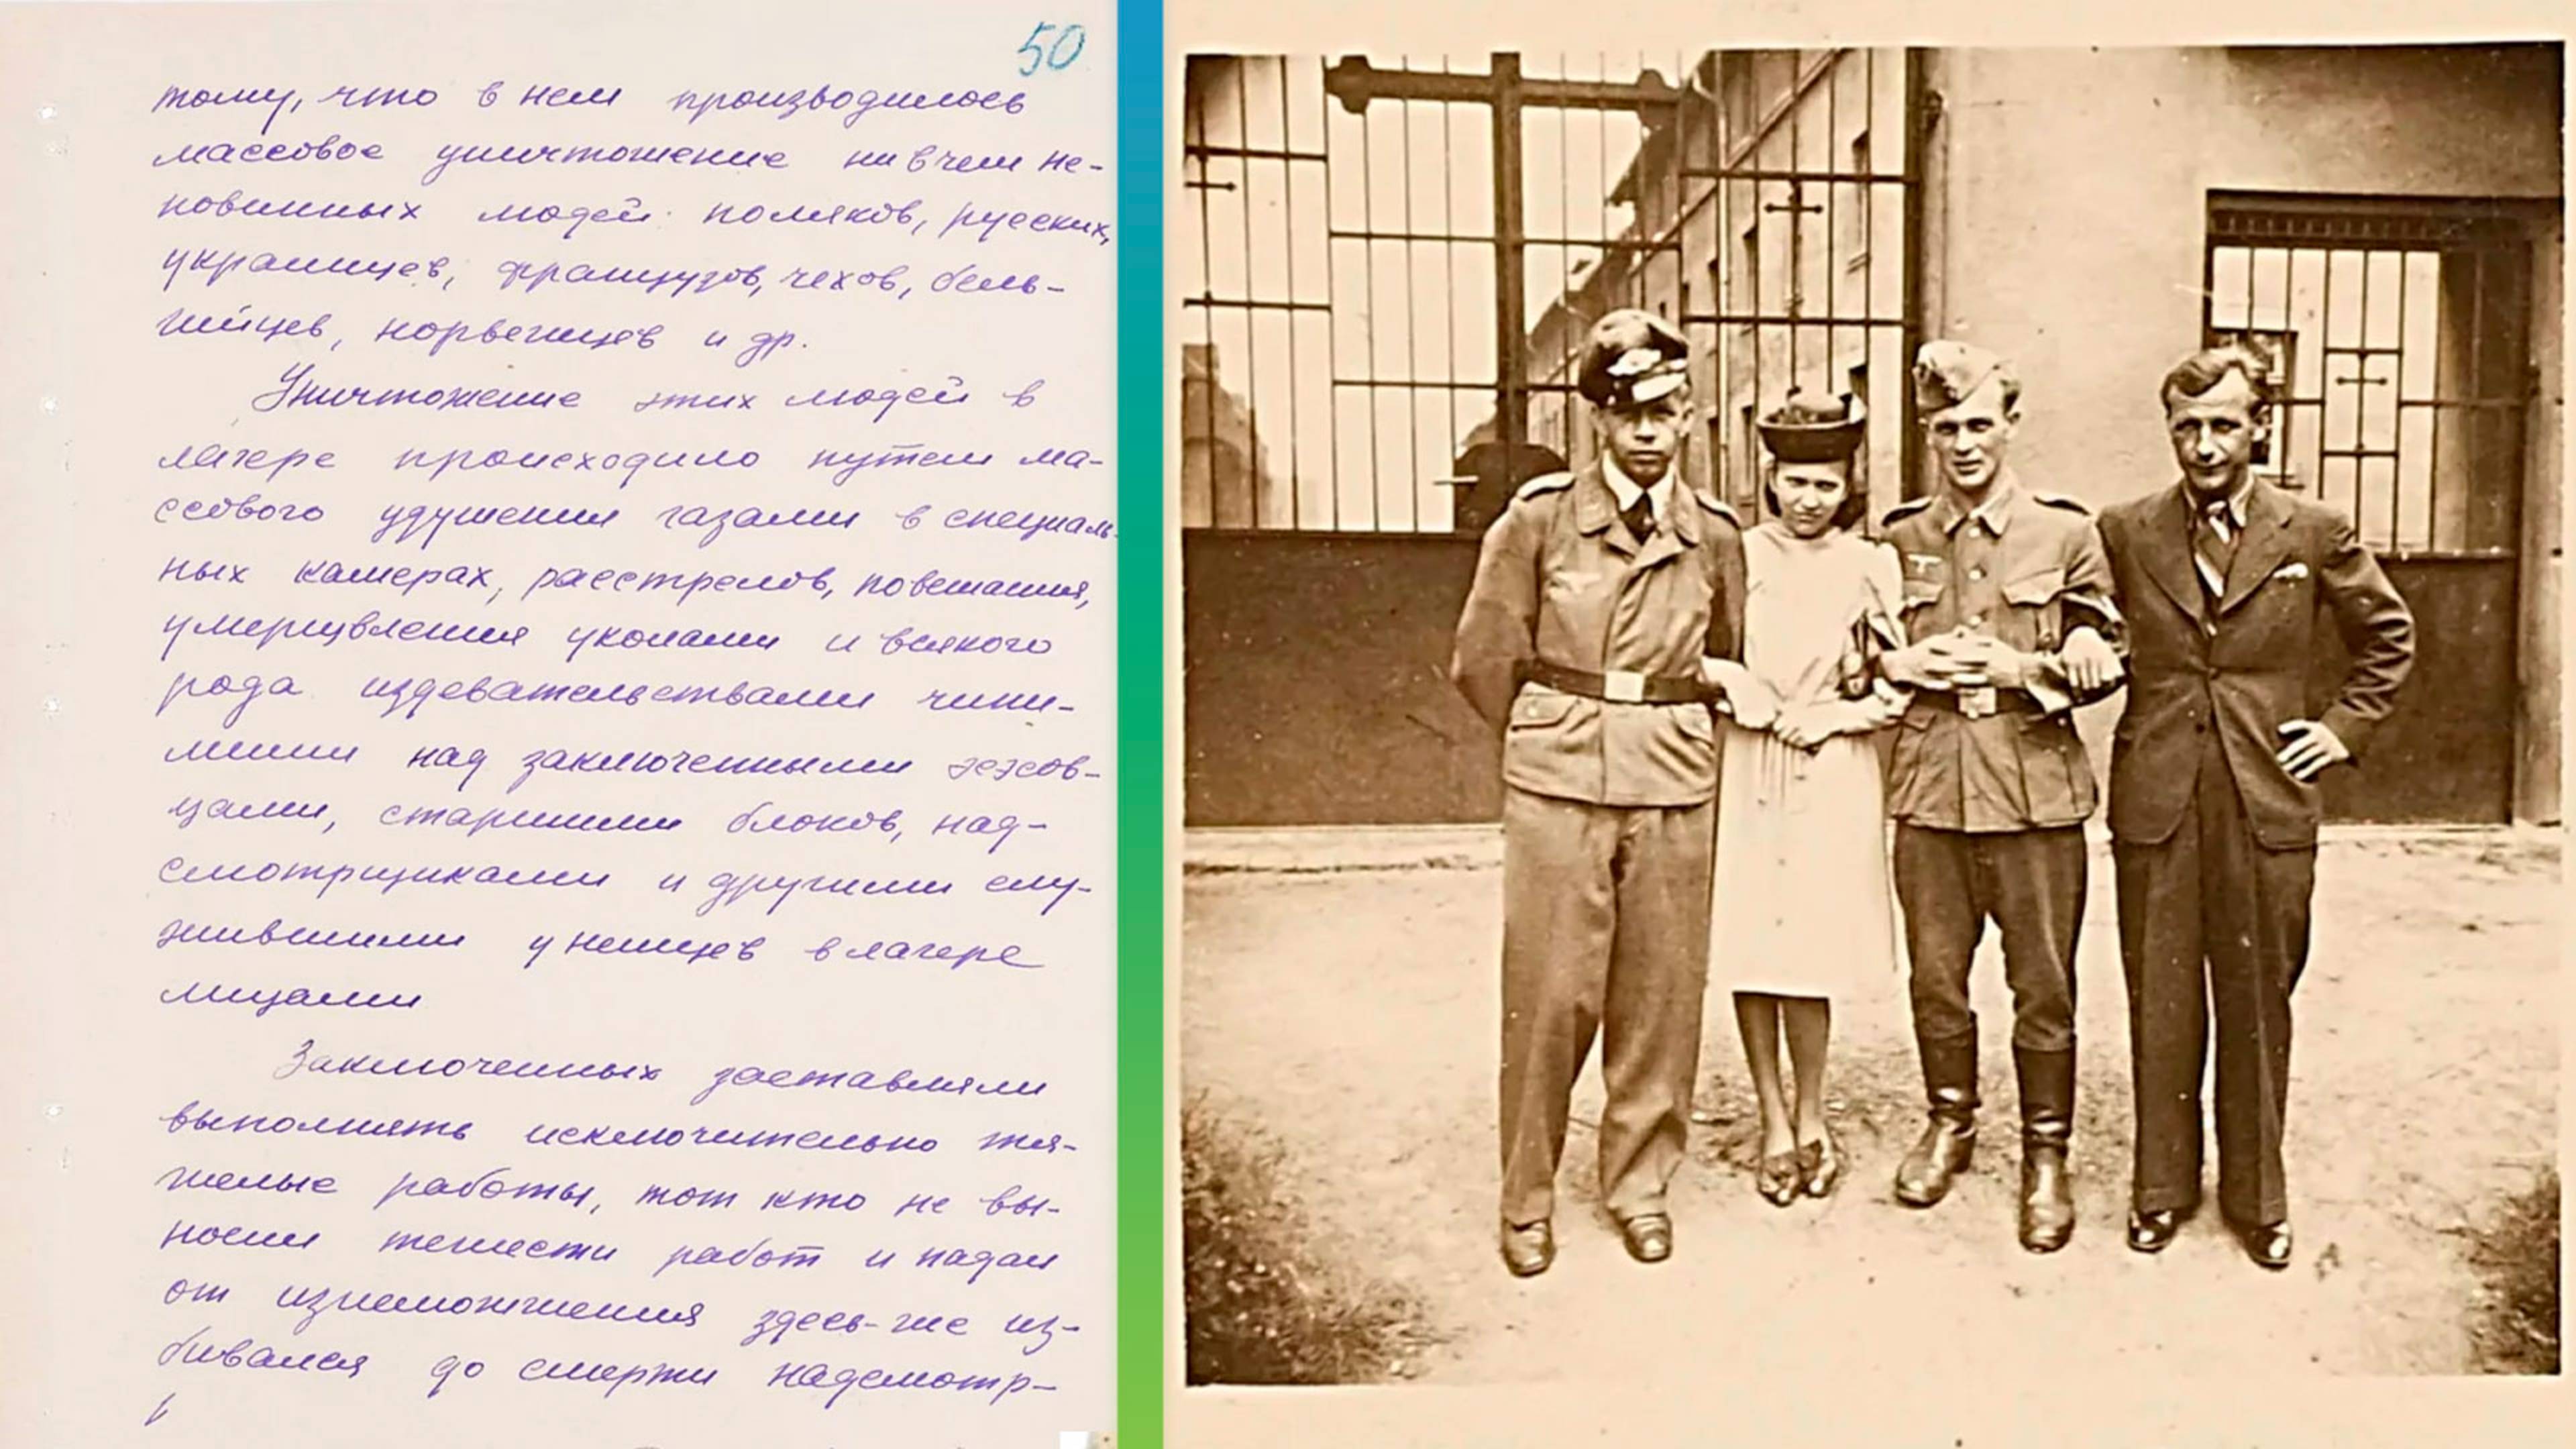 50
тому, что в нем производилось
массовое уничтожение ни в чем не-
повинных людей: поляков, русских,
украинцев, французов, чехов, бель-
гийцев, норвежцев и др.
Уничтожение этих людей в
лагере происходило путем ма-
ссового удушения газами в специаль-
ных камерах, расстрелов, повешания,
умерщвления уколами и всякого
рода издевательствами чини-
мыми над заключенными эсэсов-
цами, старшими блоков, над-
смотрщиками и другими слу-
жившими у немцев в лагере
лицами
Заключенных заставляли
выполнять исключительно тя-
желые работы, тот кто не вы-
носил тяжести работ и падал
от изнеможжения здесь-же из-
бивался до смерти надсмотр-